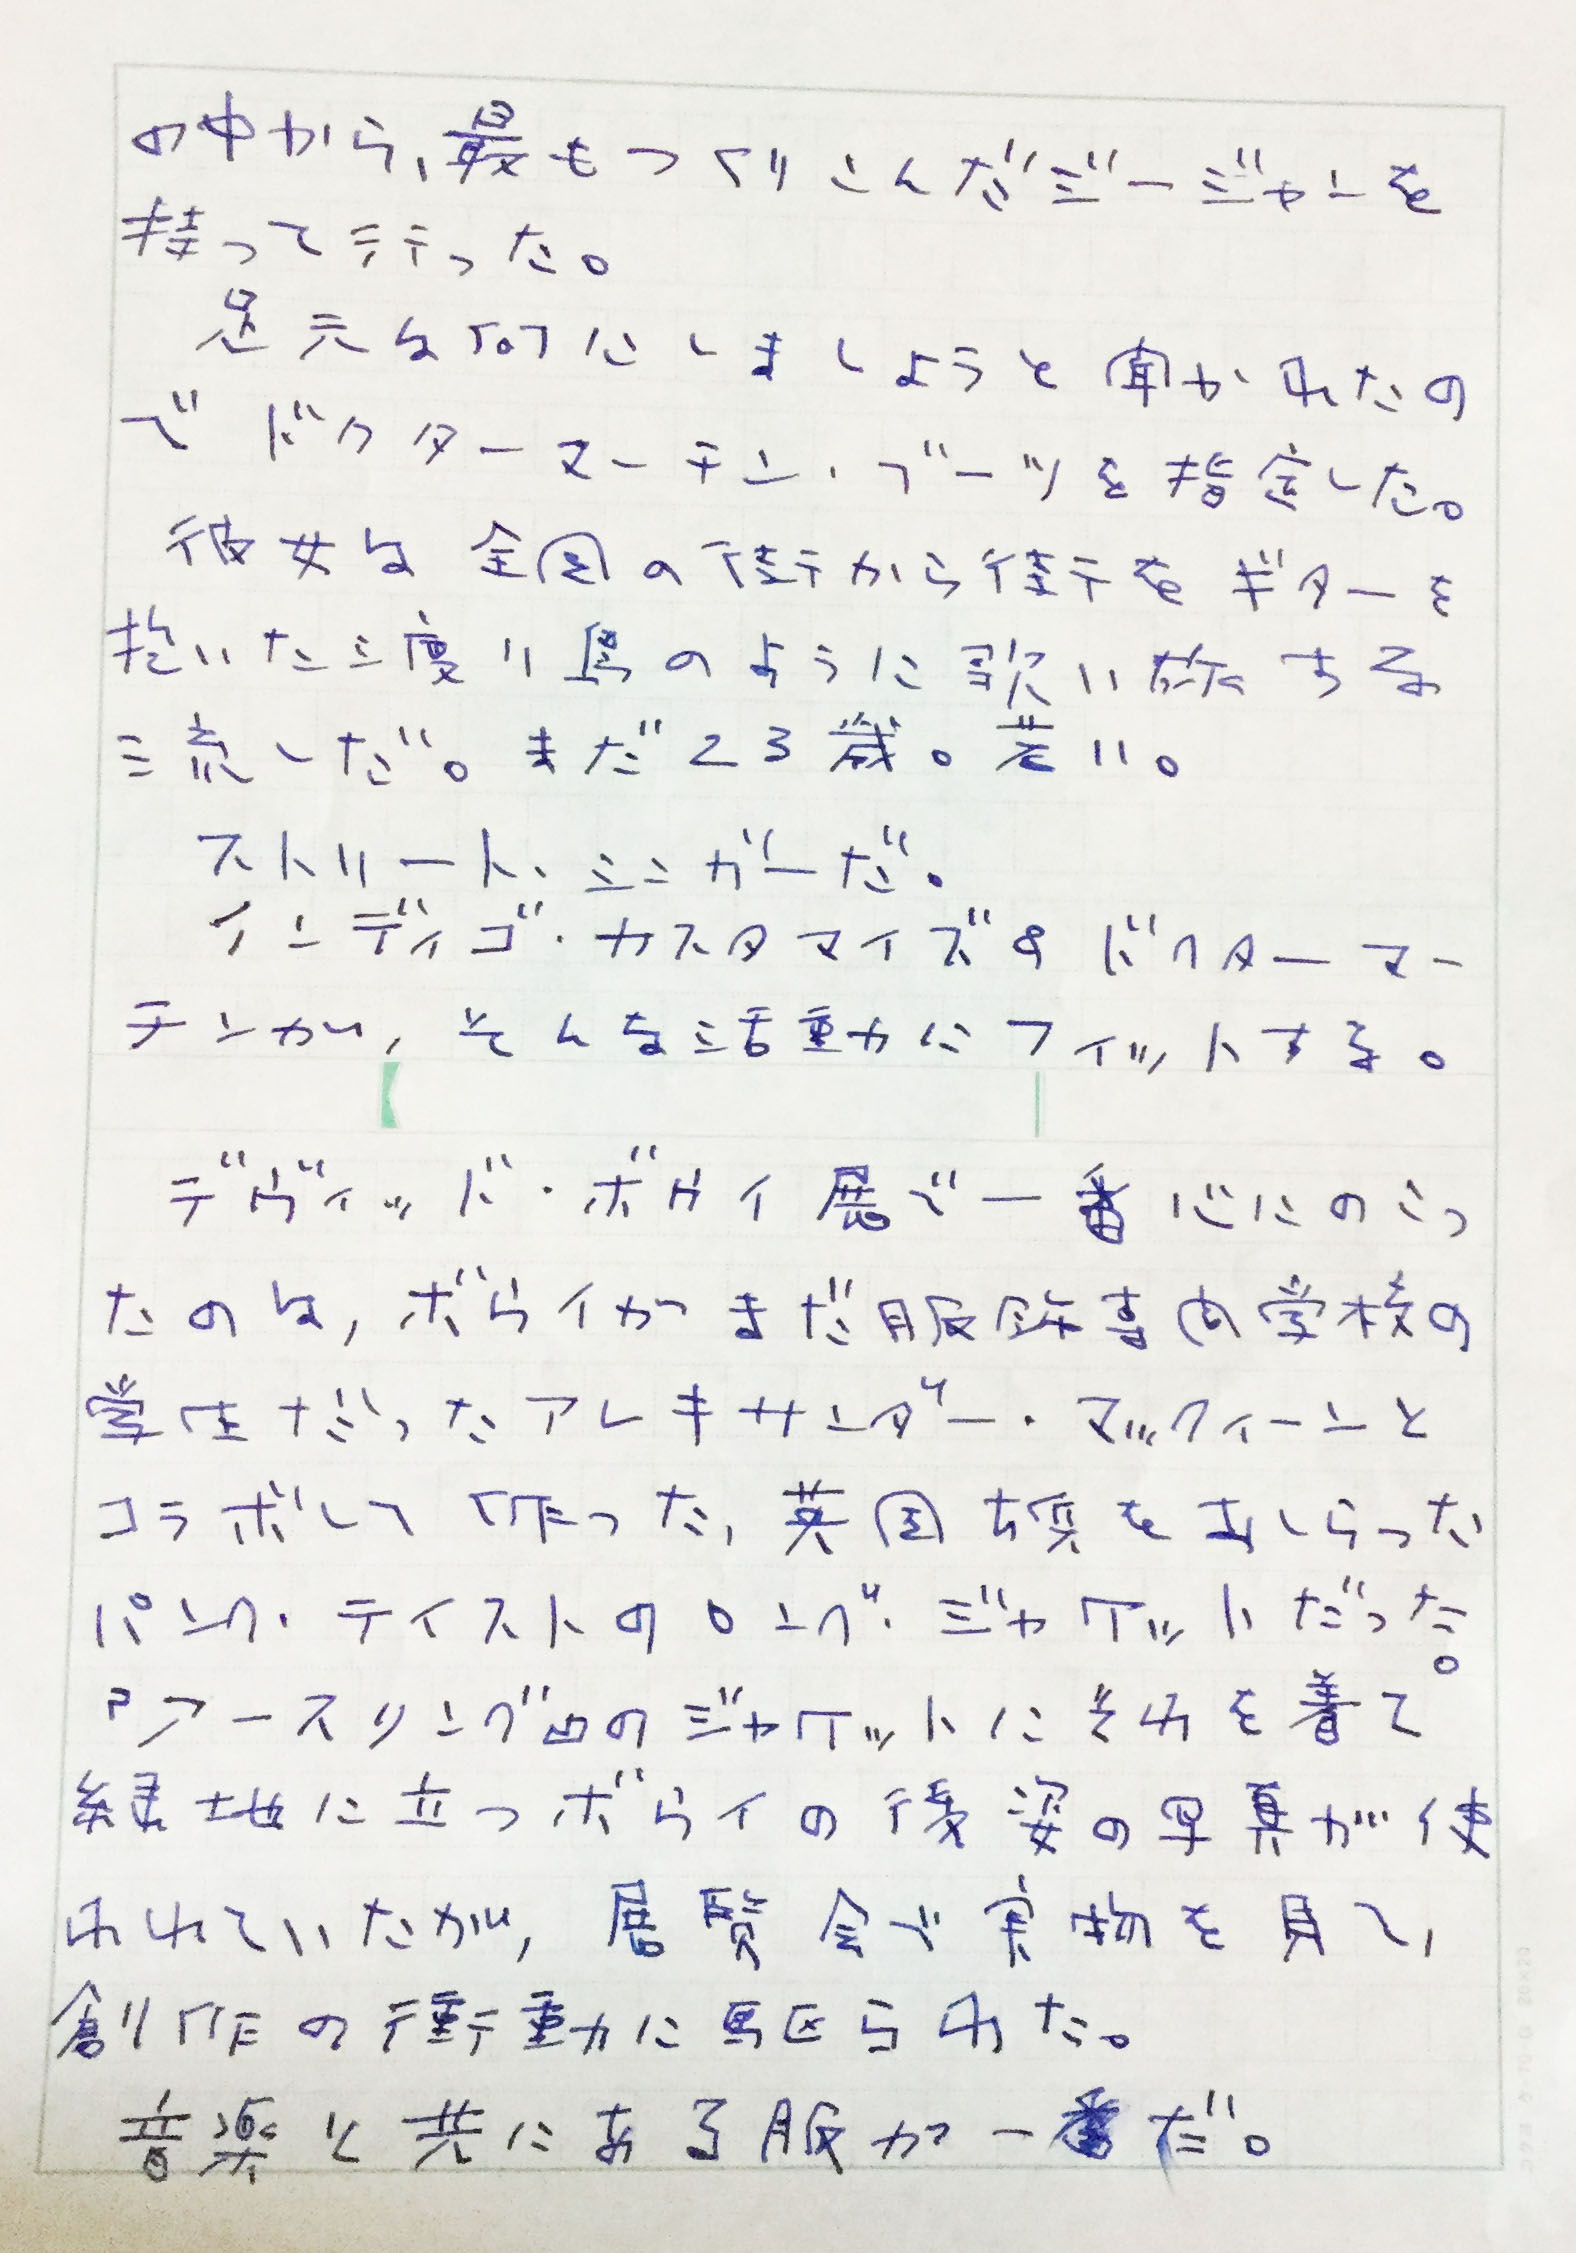 の中から、最もつくりこんだジージャンを
持って行った。
足元は何にしましょうと聞かれたの
でドクターマーチン・ブーツを指定した。
彼女は全国の街から街をギターを
抱いた渡り鳥のように歌い旅する
流しだ。まだ23歳。若い。
ストリート・シンガーだ。
インディゴ・カスタマイズ&ドクターマー
チンが、そんな活動にフィットする。
デヴィッド・ボウイ展で一番心にのこっ
たのは、ボウイがまだ服飾専門学校の
学生だったアレキサンダー・マックィーンと
コラボして作った、英国旗をあしらった
パンク・テイストのロング・ジャケットだった。
『アースリング』のジャケットにそれを着て
緑地に立つボウイの後姿の写真が使
われていたが、展覧会で実物を見て、
創作の衝動に駆られた。
音楽と共にある服が一番だ。